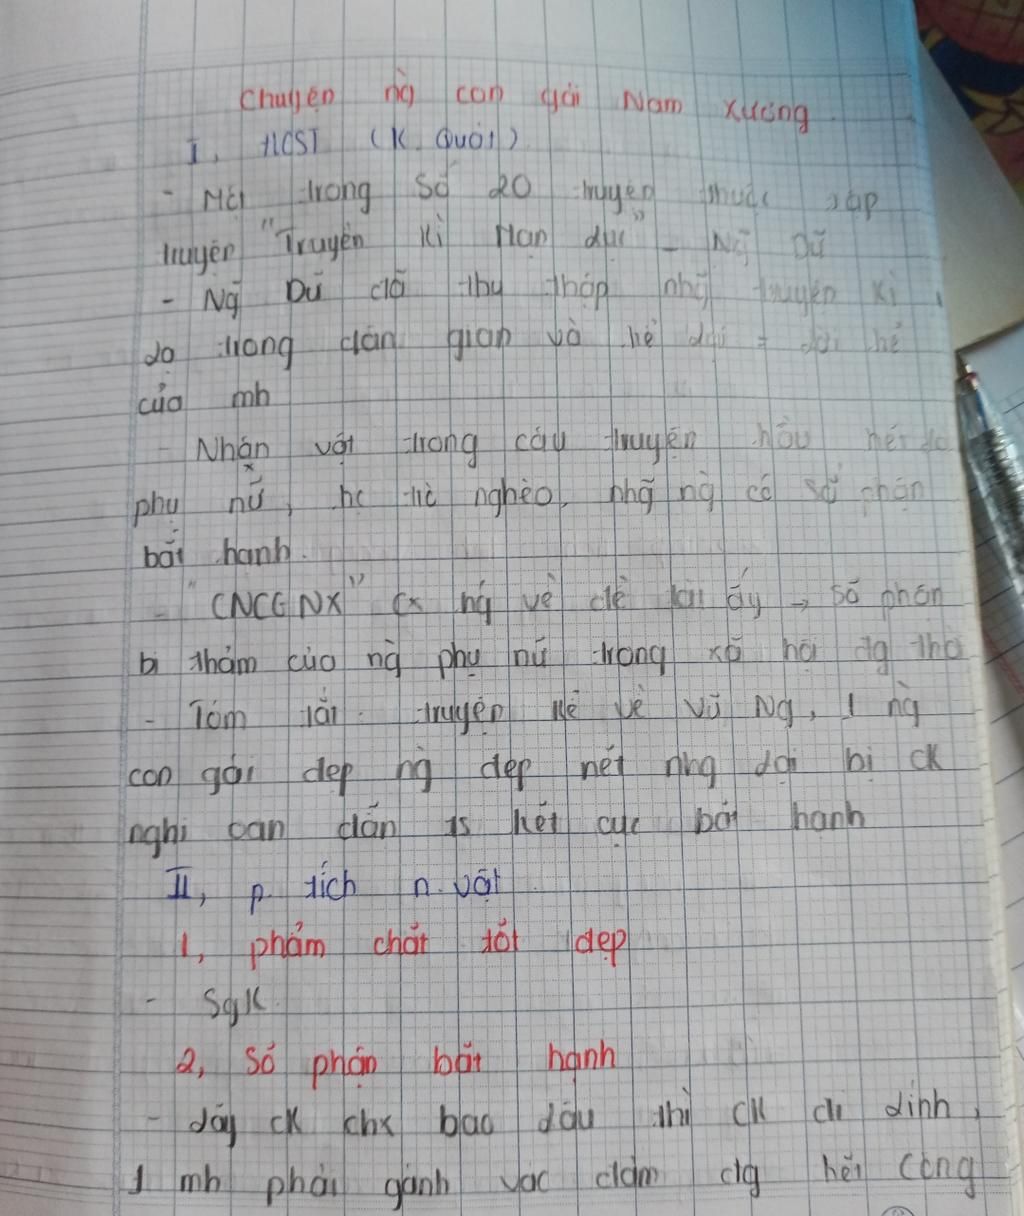 Chuyện ng` con gái Nam Xương
I, HCST (K. Quát)
- Một trong số 20 truyện thuộc tập
truyện "Truyền Kì Mạn dục" - Ng~ Dữ
- Ng~ Dữ đã thu thập nhg~ truyện kì
do trong dân gian và
của mh
- Nhân vật trong câu truyện hầu hết do
phụ nữ, hc trò nghèo, nhg~ ng` có số phận
bất hạnh.
- "CNCGNX" cx ng về đề tài ấy → số phận
bi thảm của ng` phụ nữ trong xã hội đg thờ
- Tóm tắt: truyện kể về Vũ Ng, 1 ng`
con gái đẹp ng` đẹp nết nhg dại bị ck
nghi oan dẫn ts kết cục bất hạnh
II, p. tích n. vật
1, phẩm chất tốt đẹp
- Sgk
2, Số phận bất hạnh
- lấy ck chx bao lâu thì ck đi lính,
1 mh phải gánh vác đảm đg hết công